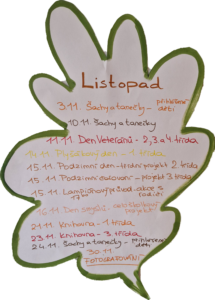 Listopad
3.11. Šachy a tanečky - přihlášené děti
10.11. Šachy a tanečky
11.11. Den Veteránů - 2, 3 a 4. třída
den - 1. třída
15.11. Podzimní den - třídní projekt 2. třída
15.11. Podzimní - projekt 3. třída
15.11. Lampiónový průvod - akce s rodiči
17
16.11. Den
21.11. Knihovna - 1. třída
23.11. Knihovna - 3. třída
24.11. Šachy a tanečky - přihlášené děti
30.11.
FOTOGRAFOVÁNÍ